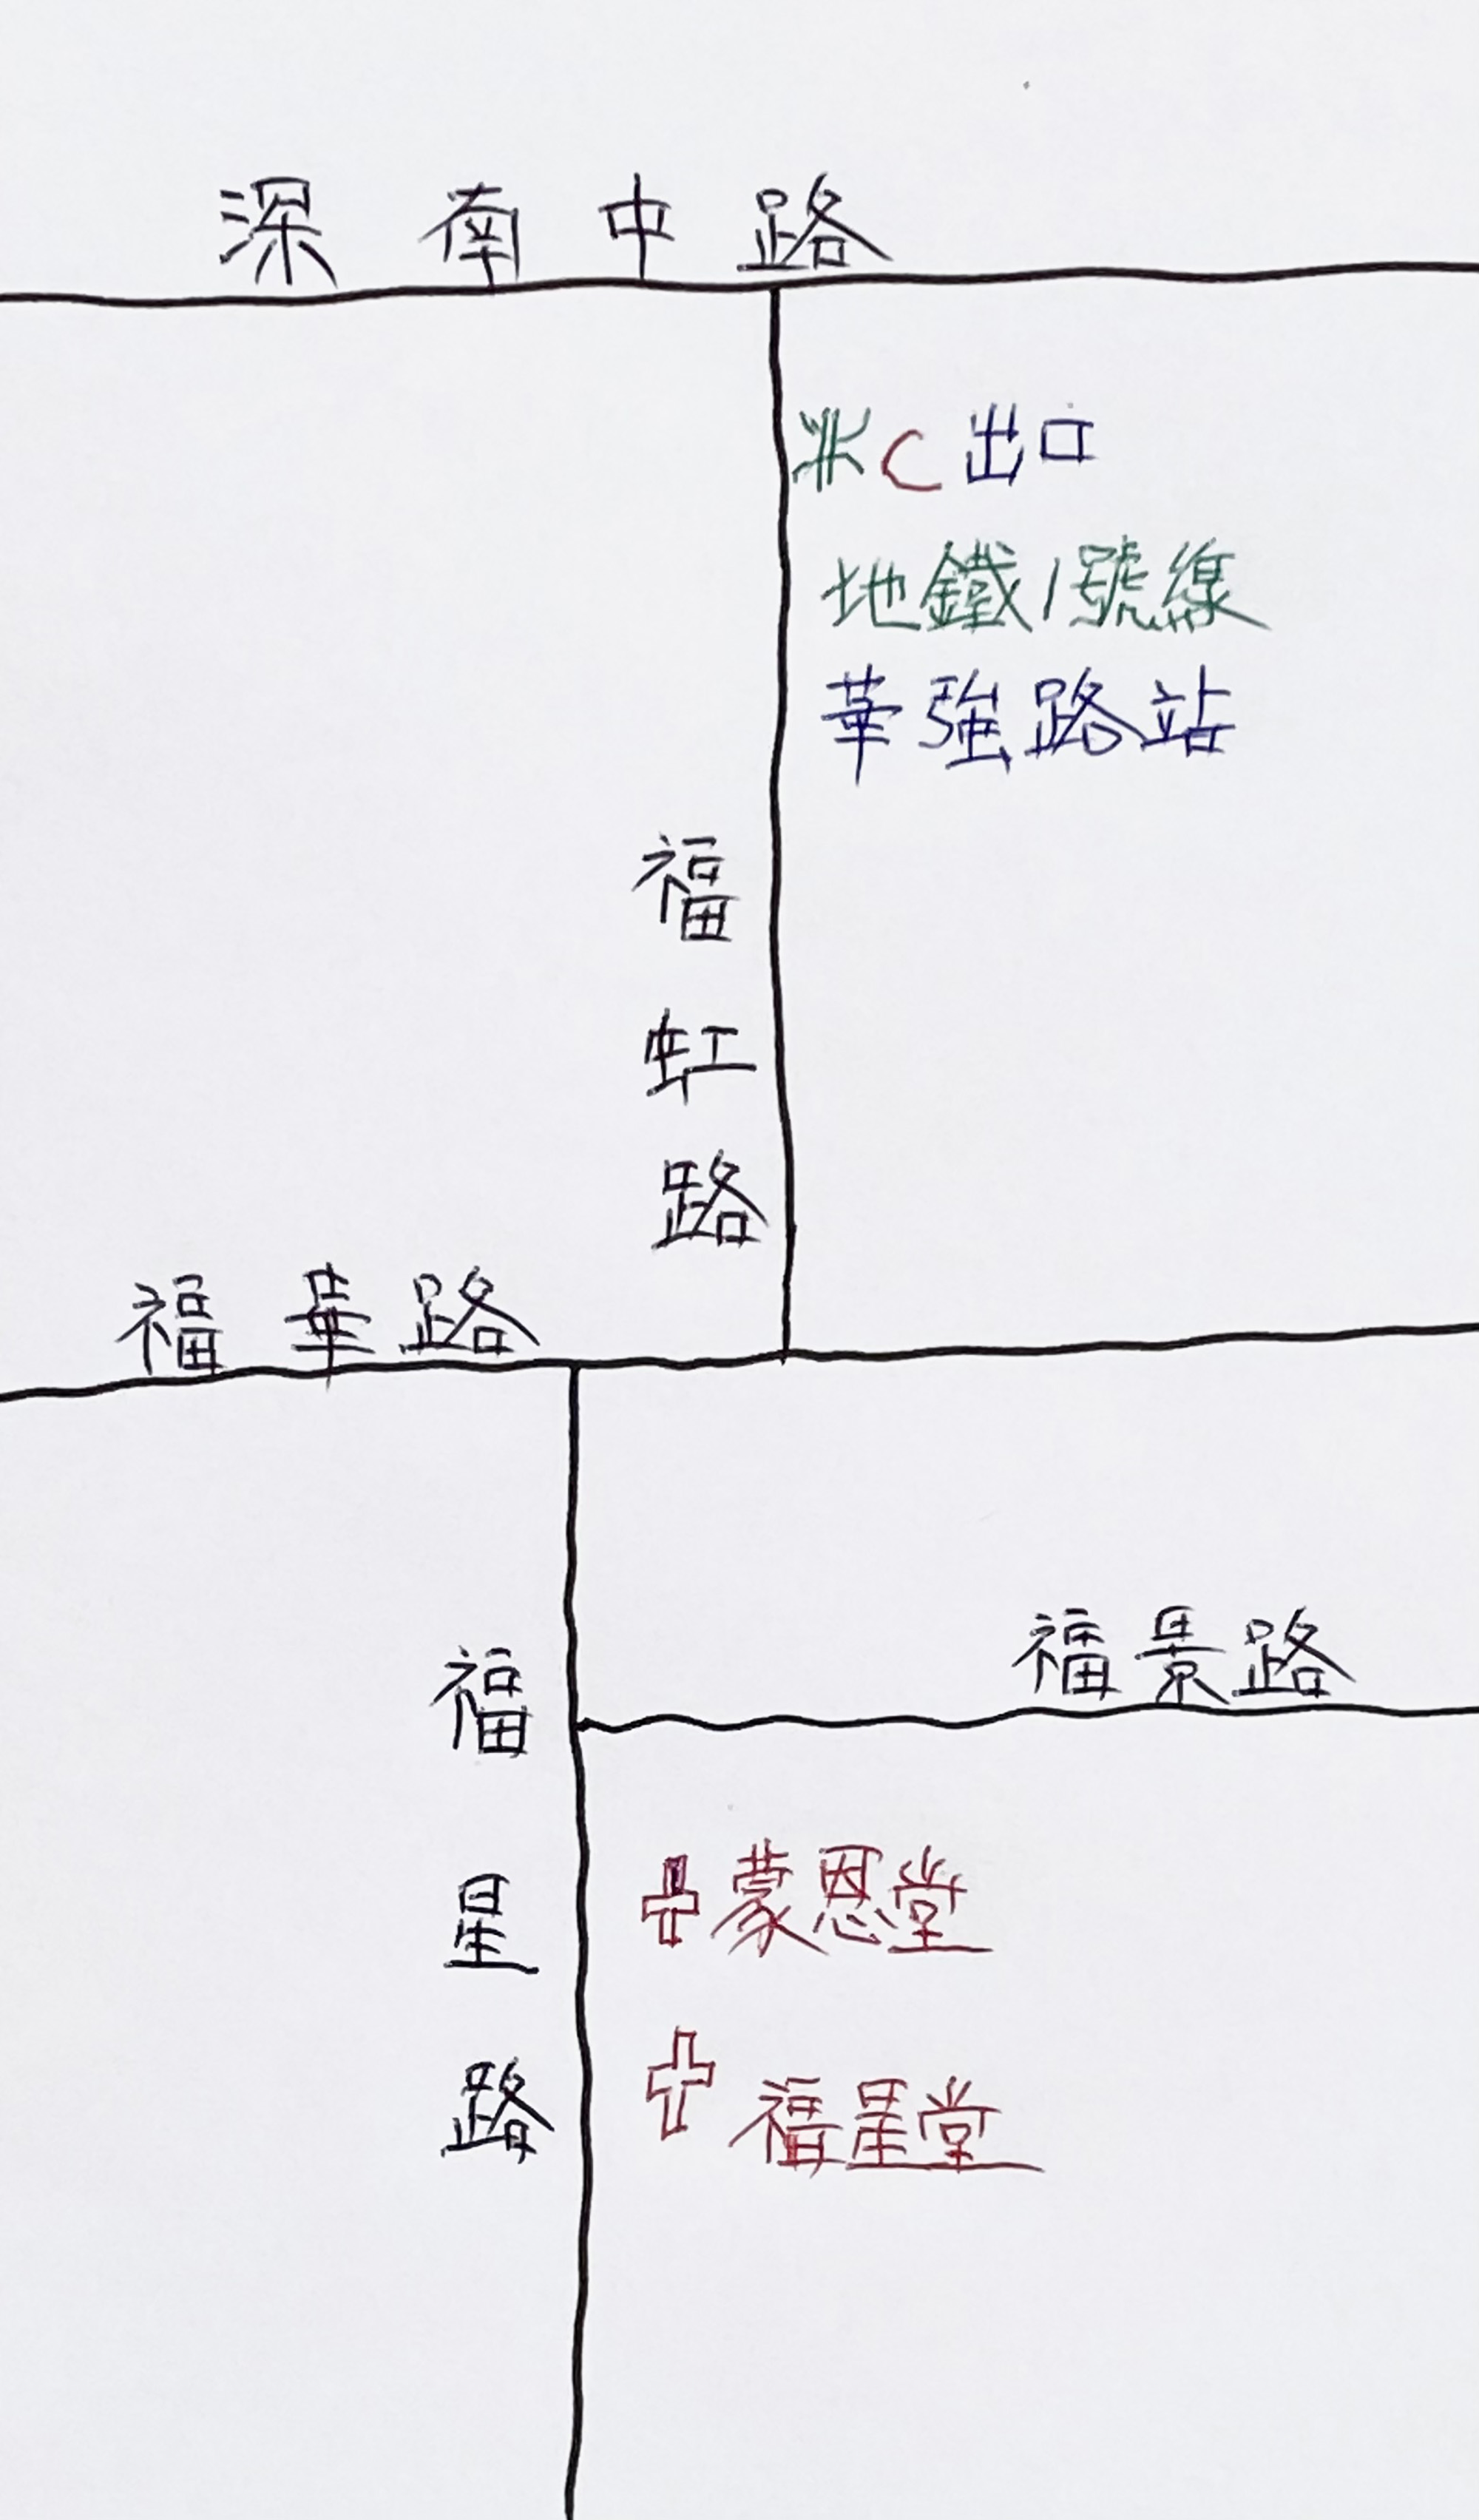 深南中路
C出口
地鐵1號線
華強路站
福虹路
福華路
福景路
福星路
蒙恩堂
福星堂